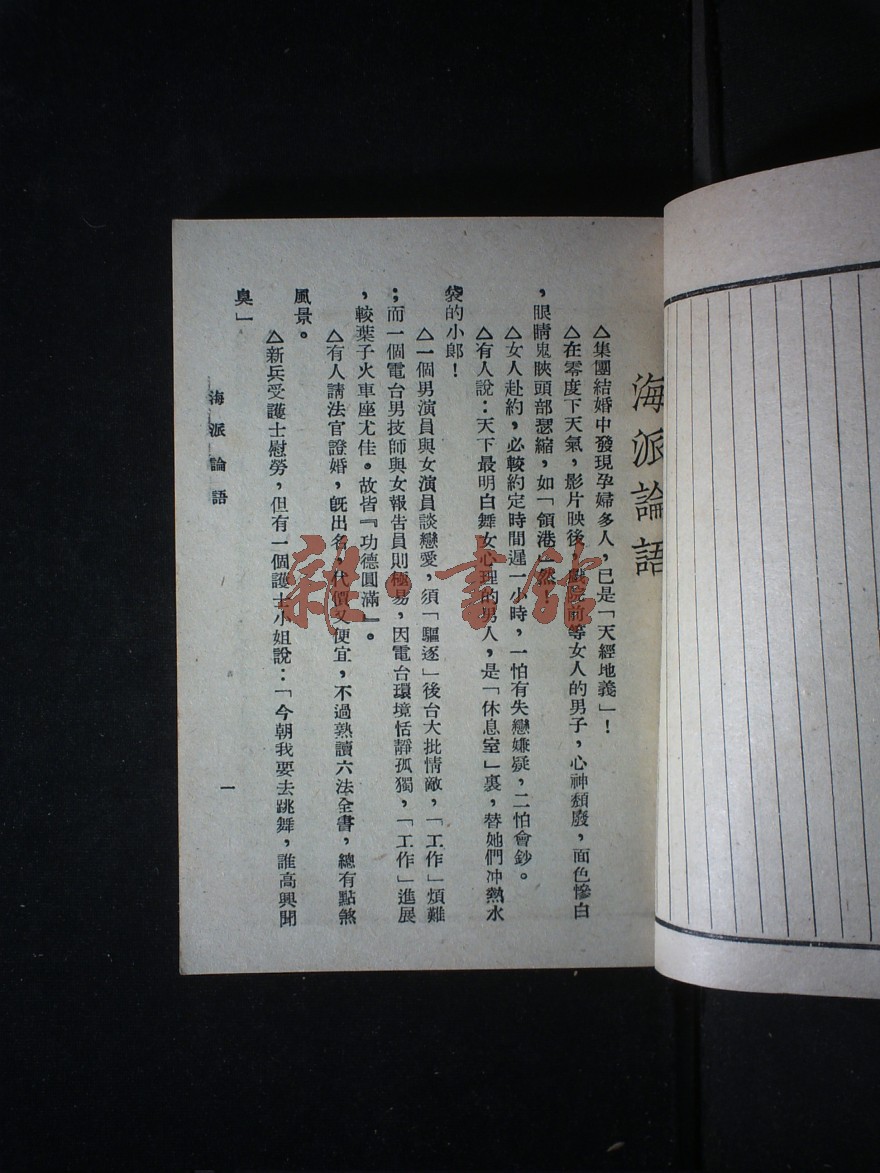 海派論語
△集團結婚中發現孕婦多人，已是「天經地義」！
△在零度下天氣，影片映後，戲院前等女人的男子，心神頹廢，面色慘白
，眼睛鬼䀹頭部瑟縮，如「領港」然！
△女人赴約，必較約定時間遲一小時，一怕有失戀嫌疑，二怕會鈔。
△有人說：天下最明白舞女心理的男人，是「休息室」裏，替她們冲熱水
袋的小郞！
△一個男演員與女演員談戀愛，須「驅逐」後台大批情敵，「工作」煩難
；而一個電台男技師與女報告員則極易，因電台環境恬靜孤獨，「工作」進展
，較葉子火車座尤佳。故皆『功德圓滿』。
△有人請法官證婚，旣出名，代價又便宜，不過熟讀六法全書，總有點煞
風景。
△新兵受護士慰勞，但有一個護士小姐說：「今朝我要去跳舞，誰高興聞
臭」
海派論語
一
雜·書館